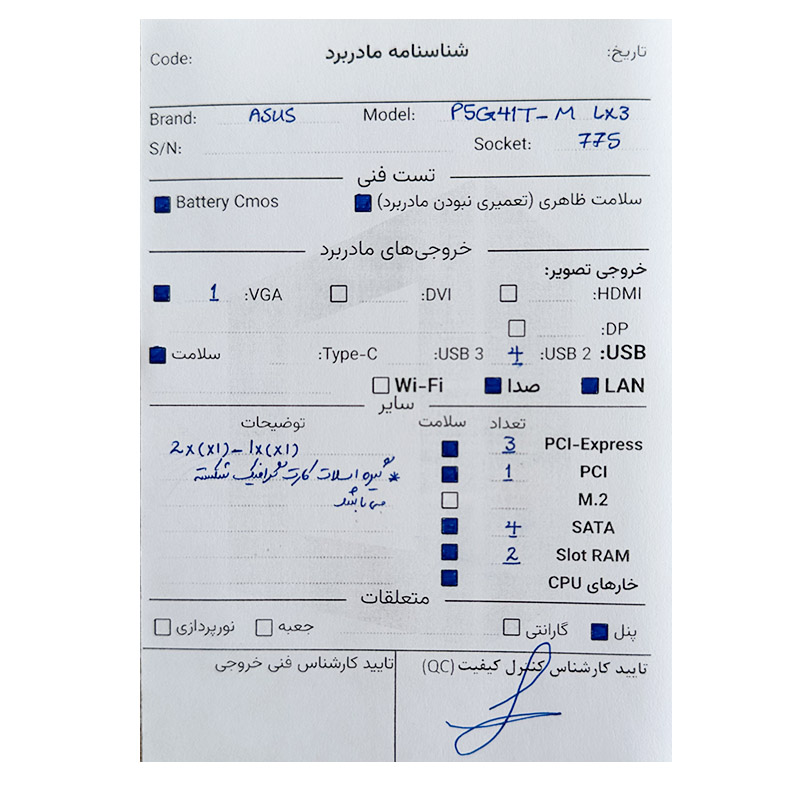 تاریخ: شناسنامه مادربرد Code:
Brand: ASUS Model: P5G41T-M LX3
S/N: Socket: 775
تست فنی
سلامت ظاهری (تعمیری نبودن مادربرد) Battery Cmos
خروجی‌های مادربرد
خروجی تصویر:
HDMI: DVI: VGA: 1
DP:
USB: USB 2: 4 USB 3: Type-C: سلامت
LAN صدا Wi-Fi
سایر
تعداد سلامت توضیحات
PCI-Express 3 2x(x1)-1x(x1)
PCI 1 * گیره اسلات کارت گرافیک شکسته
M.2 می باشد
SATA 4
Slot RAM 2
خارهای CPU
متعلقات
پنل گارانتی جعبه نورپردازی
تایید کارشناس کنترل کیفیت (QC) تایید کارشناس فنی خروجی